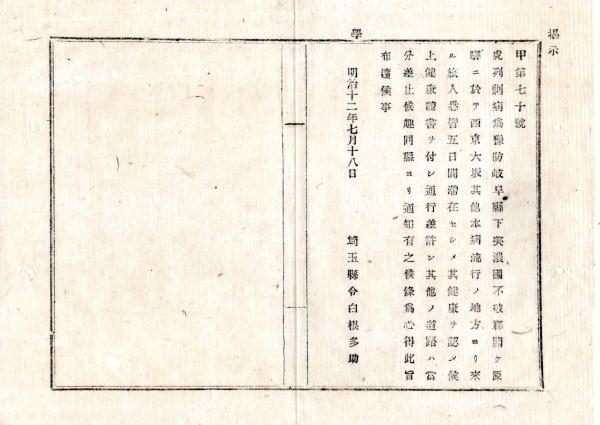 揭示
甲第七十號
虎列剌病爲豫防岐阜縣下美濃國不破郡關ケ原
驛ニ於テ西京大坂其他本病流行ノ地方ヨリ來
ル旅人悉皆五日間滯在セシメ其健康ヲ認メ候
上健康證書ヲ付シ通行差許シ其他ノ道路ハ當
分差止候趣同縣ヨリ通知有之候條爲心得此旨
布達候事
明治十二年七月十八日
埼玉縣令白根多助
學